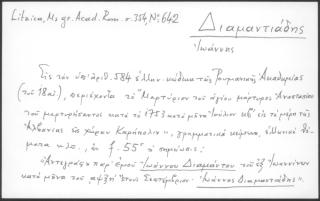 Litzica, Ms grec. Acad. Rom. σ. 354, Nο 642
Διαμαντιάδης
Ἰωάννης
Εἰς τὸν ὑπ' ἀριθ. 584 ἑλλην. κώδικα τῆς Ρουμανικῆς Ἀκαδημίας
(τοῦ 18 αἰ), περιέχονται τὸ "Μαρτύριον τοῦ ἁγίου μάρτυρος Ἀναστασίου
τοῦ μαρτυρήσαντος κατὰ τὸ 1753 κατὰ μῆνα Ἰούλιον εἰς τὰ μέρη τῆς
Ἀλβανίας εἰς χώραν", γραμματικὰ κείμενα,
ματα κλπ., ἐν f. 55 τὸ σημείωσις:
"Ἀντεγράφη παρ' ἐμοῦ Ἰωάννου Διαμάντου τοῦ ἐξ Ἰωαννίνων
κατὰ μῆνα τοῦ αψξη' ἔτους Σεπτέμβριον· Ἰωάννης Διαμαντιάδης".